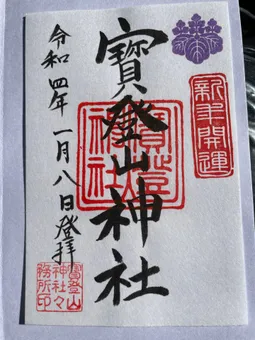 新年開運
寶登山神社
寶登山神社
令和四年一月八日登拝
寶登山
神社々
務所印